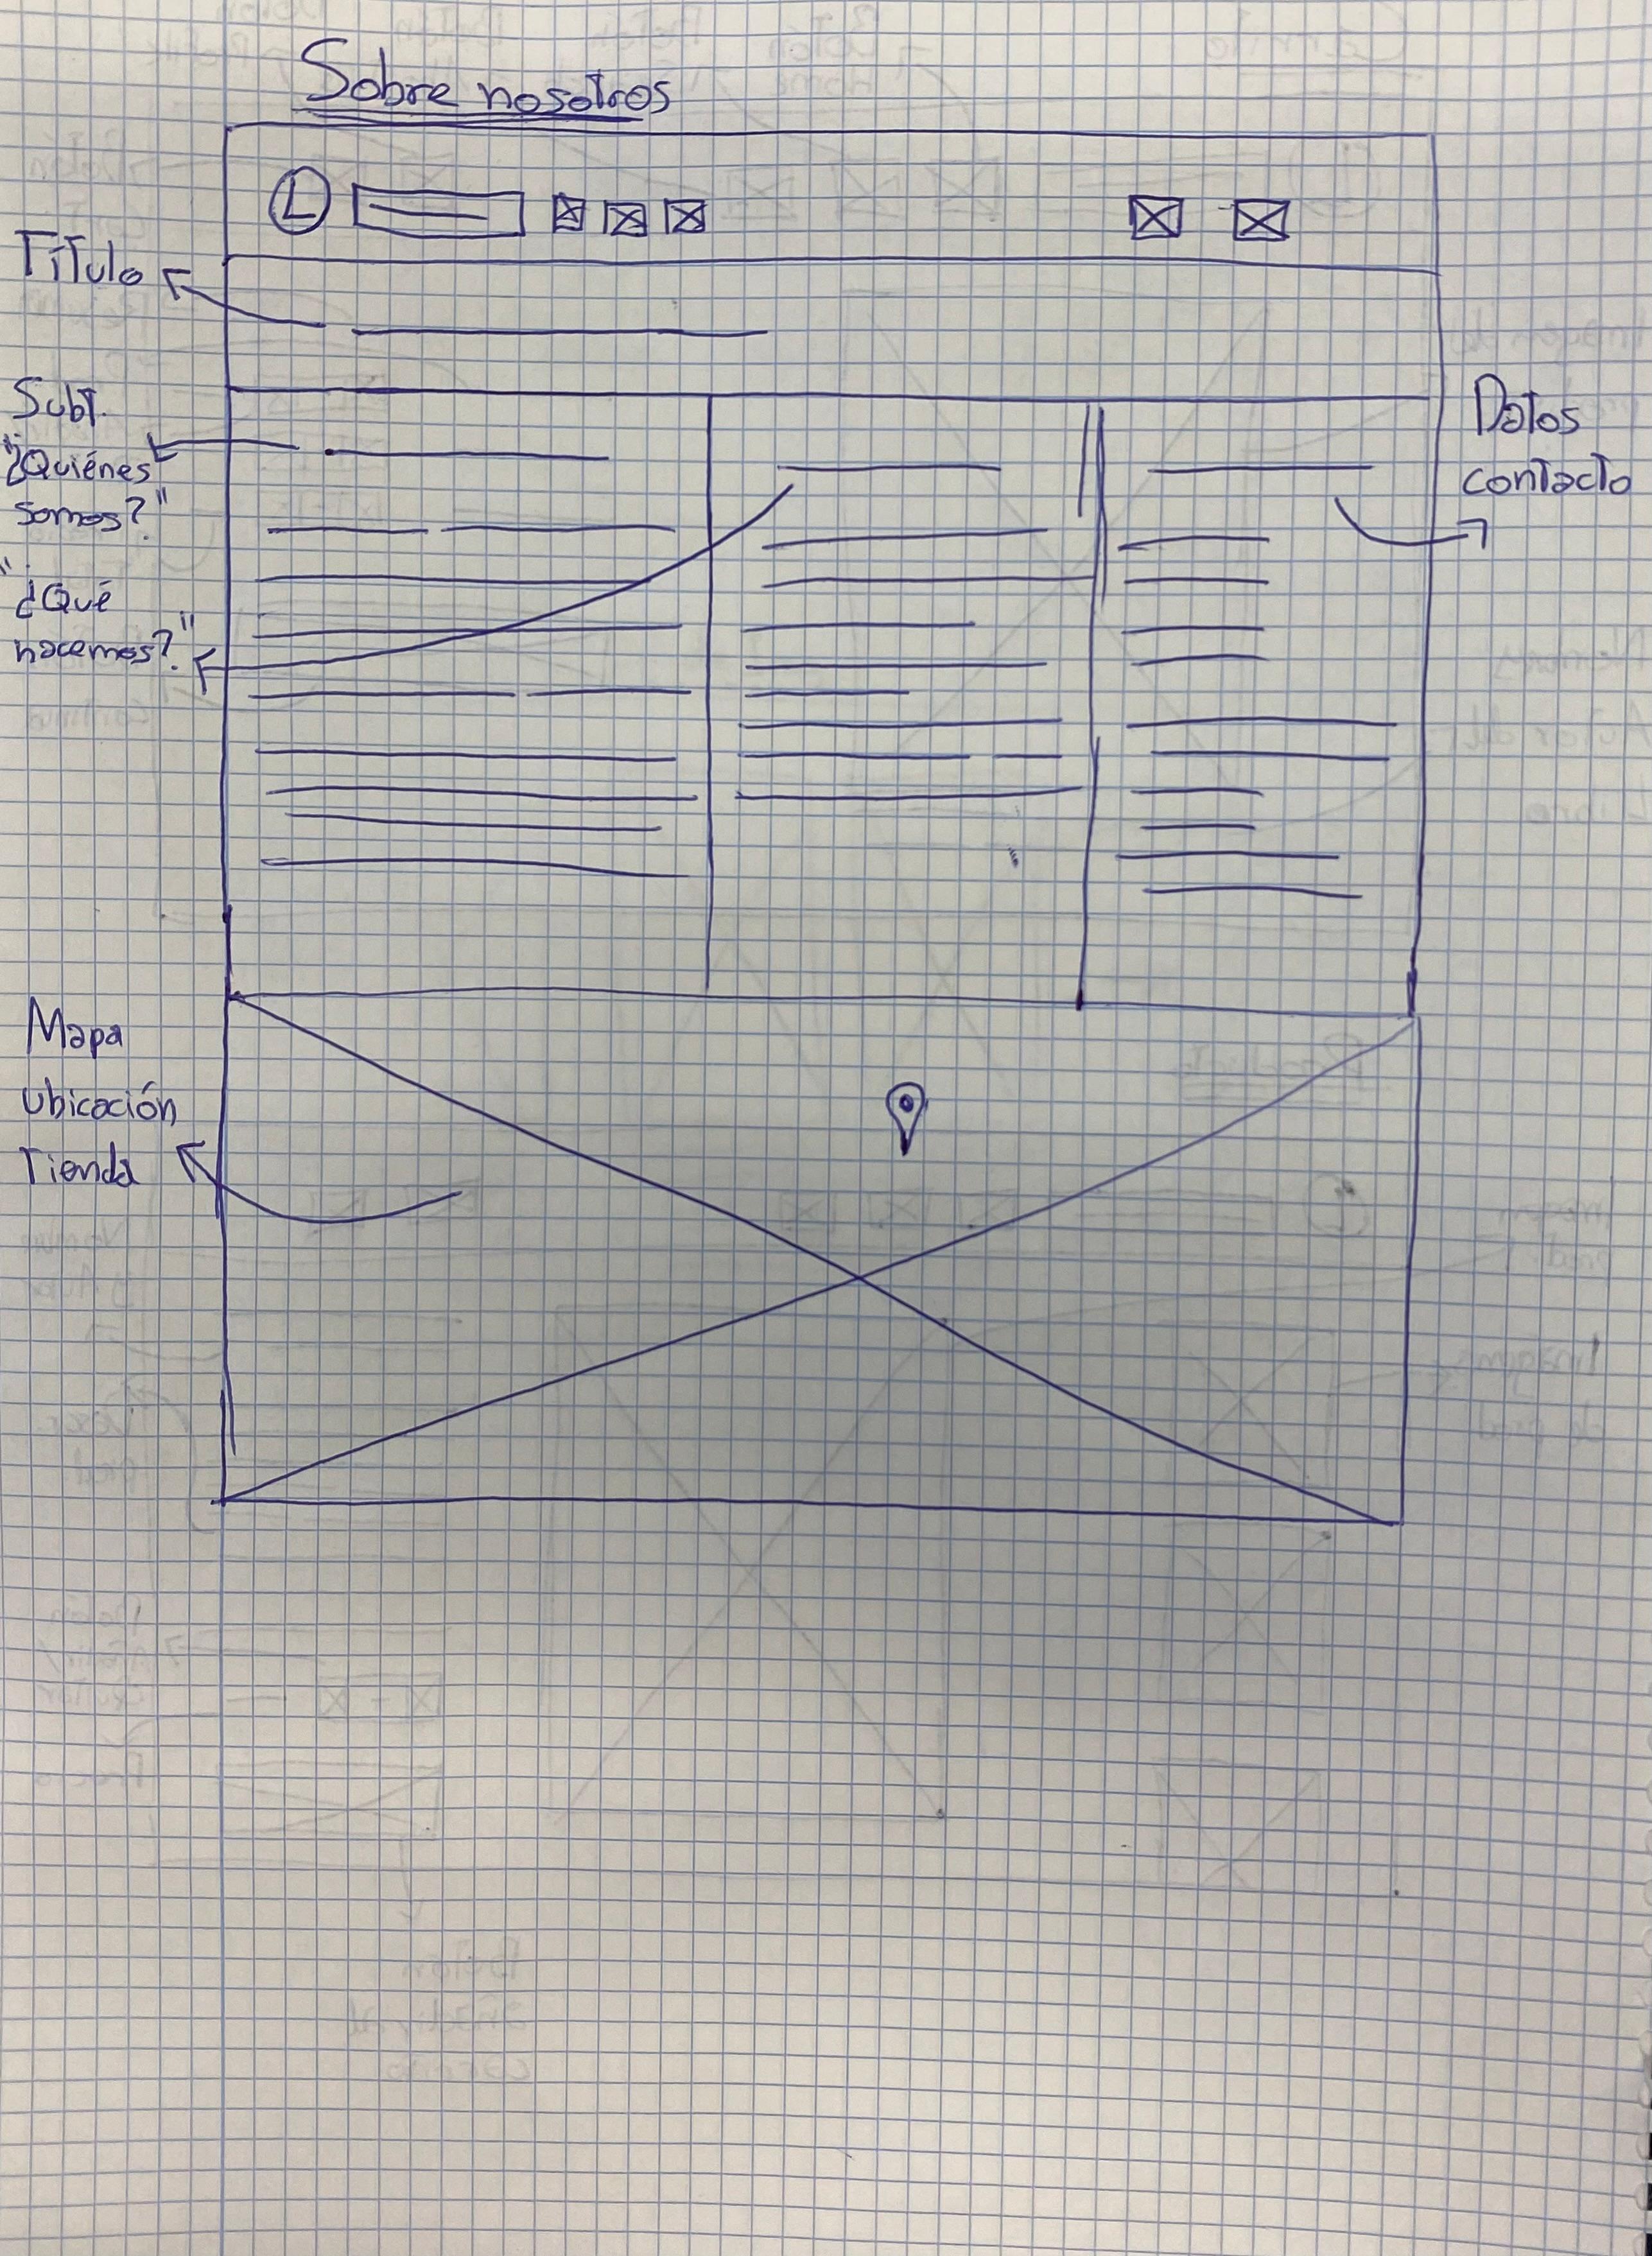 Sobre nosotros
L
Título
Subt.
"¿Quiénes
somos?"
"¿Qué
hacemos?"
Datos
contacto
Mapa
ubicación
Tienda